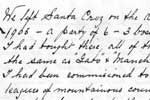 We left Santa Cruz on the
1905 - a party of 6 - 5
I had bought there, all of
the same as "Lats" & "Manch
I had been commissioned to
leagues of mountainous coun